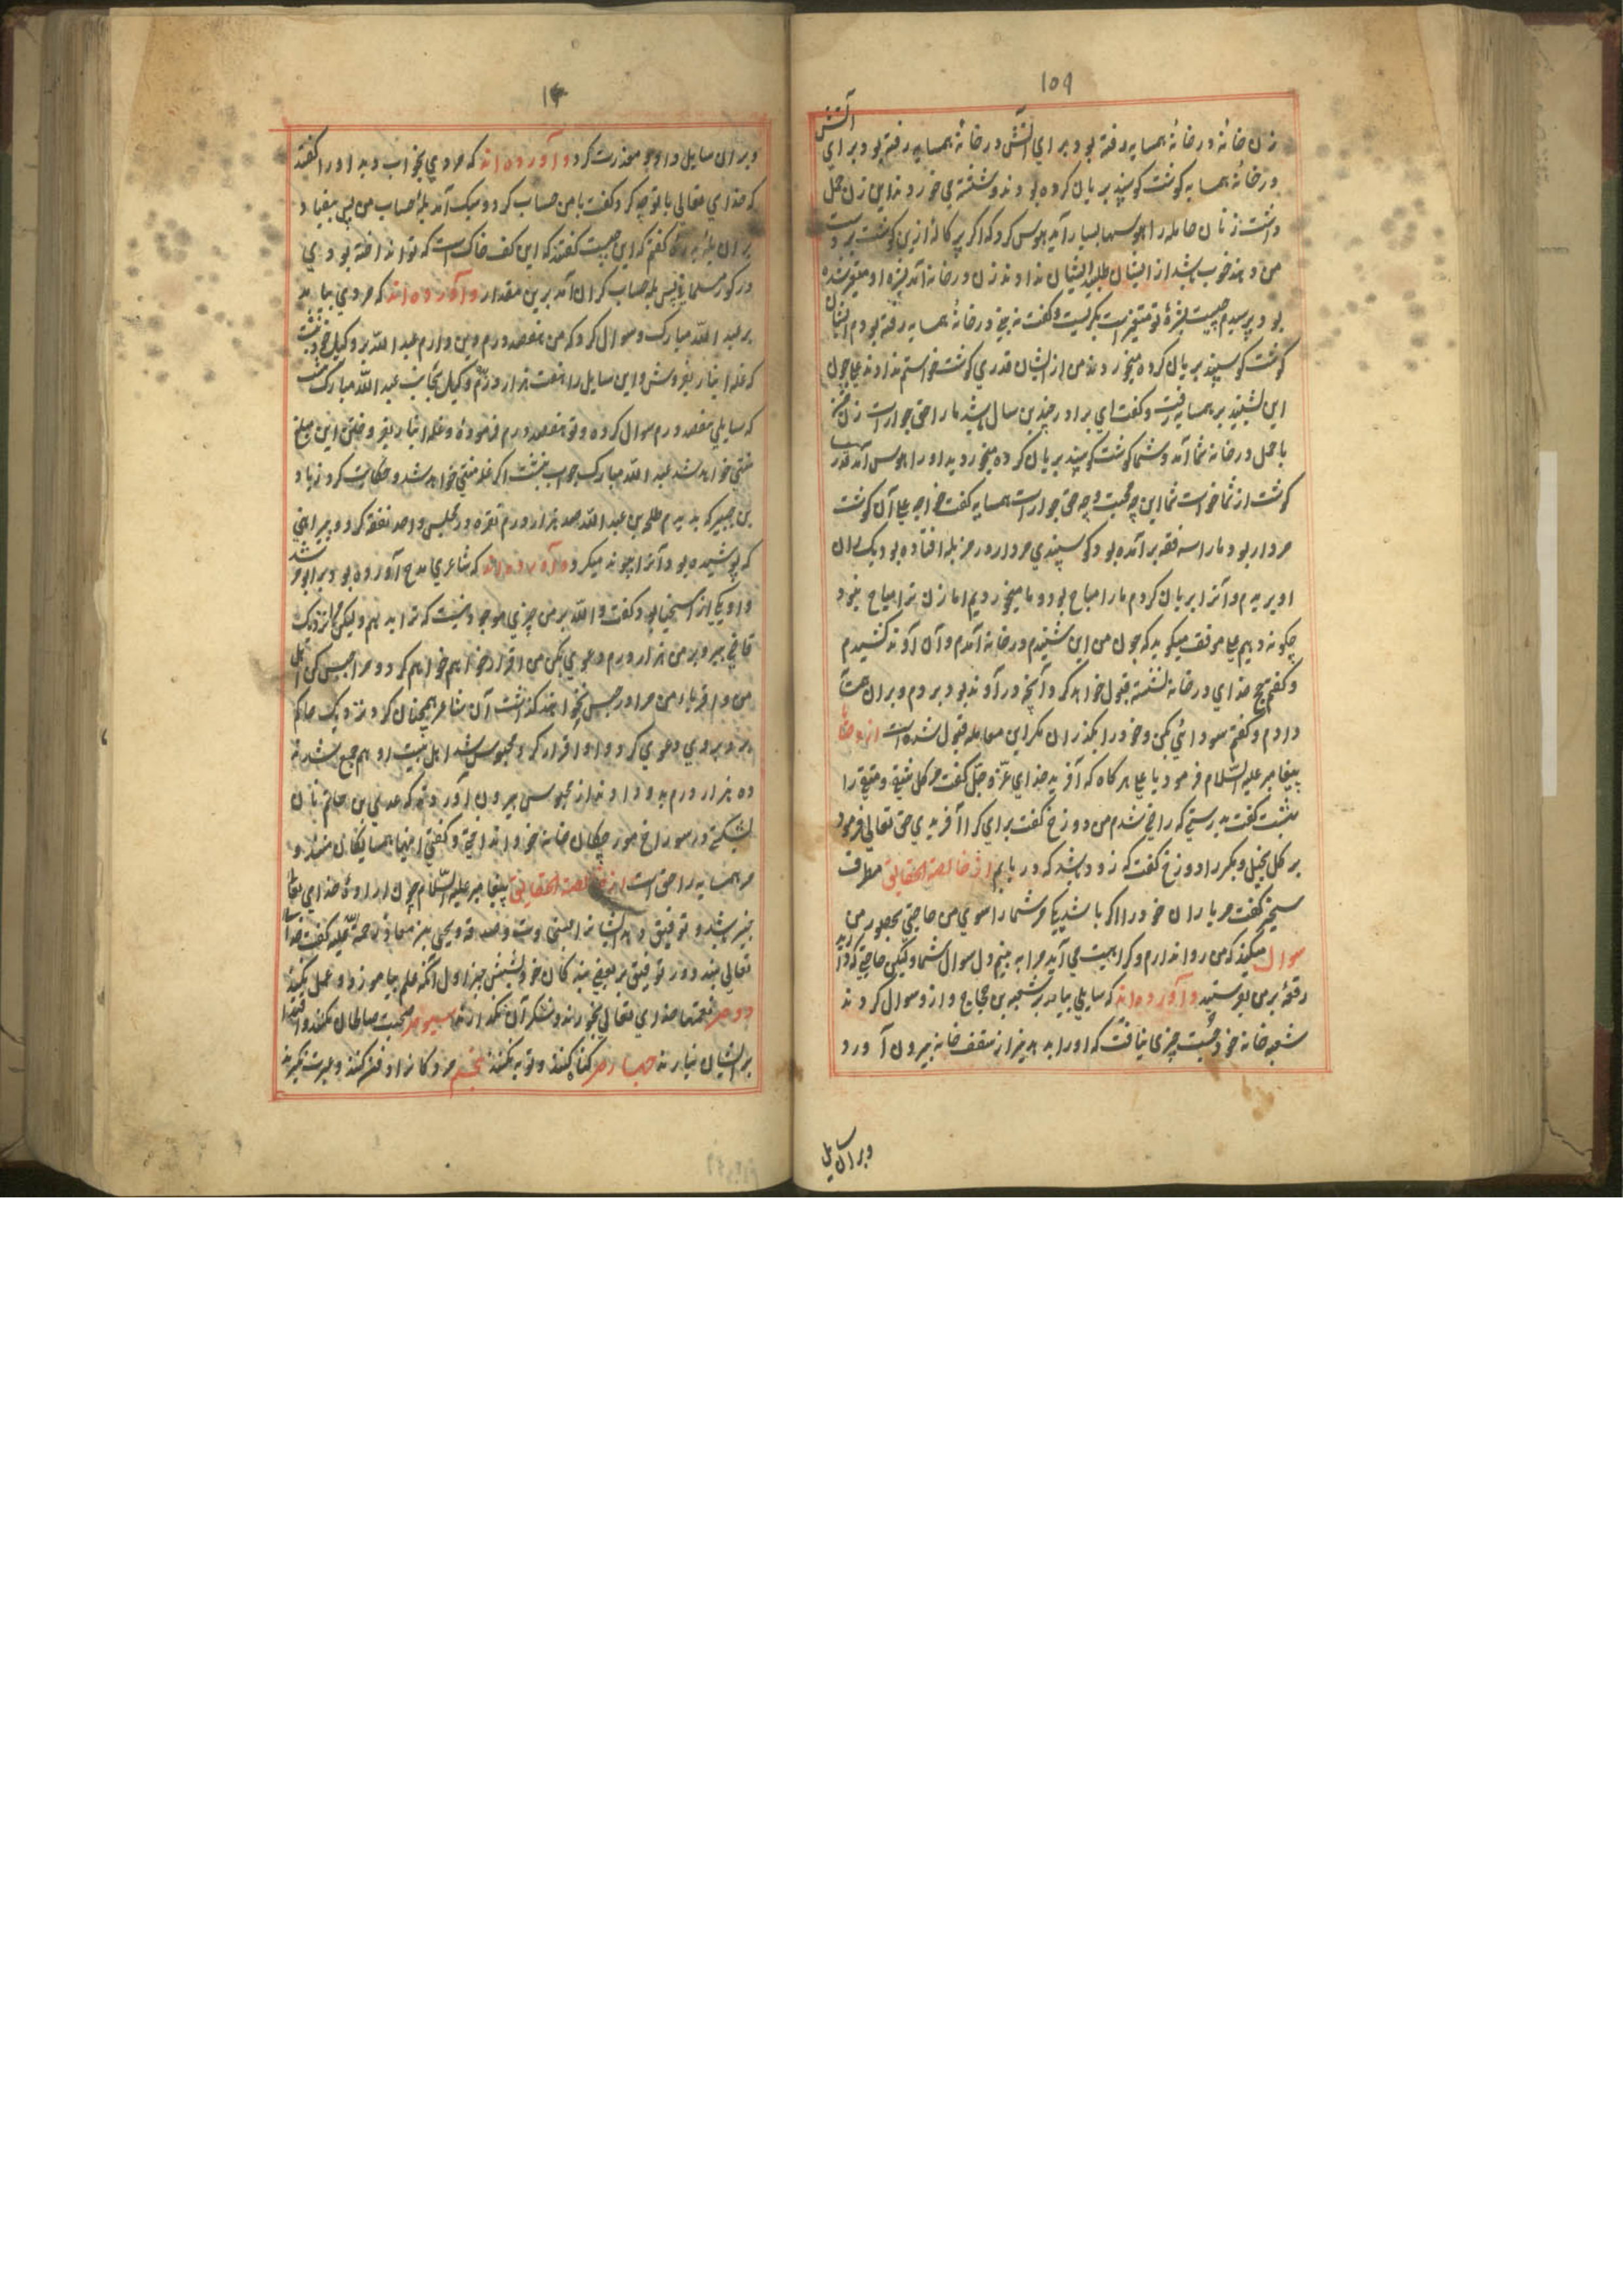 ۱۵۹
زن خانهٔ در خانهٔ همسایه رفته بود برای آتش در خانهٔ همسایه رفته بود برای آتش
در خانهٔ همسایه کوشت کوسپند بریان کرده بودند و نشسته می خوردند این زن حمل
داشت زنان حامله را هوسها بسیار آید هوس کرد که اکر پرکالهٔ ازین کوشت بر دست
من دهند خوب باشد از ایشان طلبید ایشان ندادند زن در خانه آمد بشرهٔ او متغیر شده
بود پرسیدم چیست بشرهٔ تو متغیر است بکریست و کفت نه یخ در خانهٔ همسایه رفته بودم ایشان
کوشت کوسپند بریان کرده میخوردند من از ایشان قدری کوشت خواستم ندادند علی چون
این بشنید بر همسایه رفت و کفت ای برادر چندین سال باشد ما را حق جوار است زن
با حمل در خانه شما آمد و شما کوشت کوسپند بریان کرده میخوردید او را هوس آمد قدر
کوشت از شما خواست شما این چه محبت و چه حق جوار است همسایه کفت خواجه علی آن کوشت
مردار بود ما را سه فقه برآمده بود کوسپندی مردار در مزبله افتاده بود یک ران
او بریدم و آنرا بریان کردم ما را مباح بود و ما میخوردیم اما زن ترا مباح نبود
چکونه دهیم علی موفق میکوید که چون من این شنیدم در خانه آمدم و آن آوند کشیدم
و کفتم حج خدای در خانه نشسته قبول خواهد کرد آنچه در آوند بود بردم و بر آن
دادم و کفتم سودائی بکن و خود را بکذران مکر این معامله قبول شده است
پیغامبر علیه السلام فرمود یا علی هر کاه که آفرید خدای عز و جل کفت مر کل متقی را
بهشت کفت بدرستی که راضی شدم من دوزخ کفت برای که را آفریدی حق تعالی فرمود
بر کل بخیل و مکر را دوزخ کفت که زود باشد که دریابم از خالصة الحقایق مطرف
کفت مر یاران خود را اکر باشد یکی مر شما را سوی من حاجتی بحضور من
سوال میکند که من روا ندارم و کراهیت می آید مرا به بینم دل سوال شما و لیکن حاجتی که دارید
رقعهٔ بر من بفرستید و آورده اند که سایلی بیامد بر شعبه بن حجاج و از و سوال کردند
شعبه خانه خود جست چیزی نیافت که او را بدهد نیز از سقف خانه بیرون آورد
وبران سایل
۱۶۰
وبران سایل داد و معذرت کرد و آورده اند که مردی بخواب دید او را کفتند
که خدای تعالی با تو چه کرد کفت با من حساب کرد و سبک آمد پلهٔ حساب من پس بیفتاد
بر آن پلهٔ کفتم که این چیست کفتند که این کف خاک است که تو انداخته بودی
در کور مسلمانی پس پله حساب کران آمد برین مقدار و آورده اند که مردی بیامد
بر عبد الله مبارک و سوال کرد که من هفصد درم دین دارم عبد الله بر وکیل خود نبشت
که غله انبار بفروش و این سایل را هفت هزار درم وکیل بجانب عبد الله مبارک نبشت
که سایلی هفصد درم سوال کرده و تو هفصد درم فرمودهٔ و غله انبار بفروختن این مبلغ
خواهد شد عبد الله مبارک جواب نبشت اکر غله خواهد شد و حکایت کرد زیاد
بن جبیر که بدیدم طلحه بن عبد الله صد هزار درم نقره در مجلس واحد نفقه کرد و پیراهنی
که پوشیده بود آنرا پیوند میکرد و آورده اند که شاعری مدح آورده بود
و او یکی از اسخیا بود کفت والله بر من چیزی موجود نیست که ترا بدهم و لیکن مرا نزدیک
قاضی ببر و بر من هزار درم دعوی بکن من اقرار خواهم کرد و مرا حبس کن اهل
من و اقربای من مرا در حبس نخواهند کذاشت آن شاعر همچنان کرد نزدیک حاکم
ببرد بروی دعوی کرد و او اقرار کرد محبوس شد اهل بیت او هم جمع شدند
ده هزار درم بدو دادند از محبوس بیرون آوردند که عدی بن حاتم نان
بشکستی در سوراخ مورچکان خانه خود انداختی و کفتی اینها همسایکان منند و
مر همسایه را حق است از خالصة الحقایق پیغامبر علیه السلام چون ارادهٔ خدای تعالی
خیر باشد توفیق دهد ایشان را یحیی بن معاذ رحمة الله علیه کفت خدای
تعالی ببندد در توفیق بر بعضی بندکان خود بشش چیز اول آنکه علم بیاموزند و عمل نکنند
دوم نعمتها خدای تعالی بخورند و شکر آن نکذارند سیوم صحبت صالحان بکنند و اقتدا
بر ایشان نیارند چهارم کناه کنند و توبه نکنند پنجم مردکان را دفن کنند و عبرت نکیرند